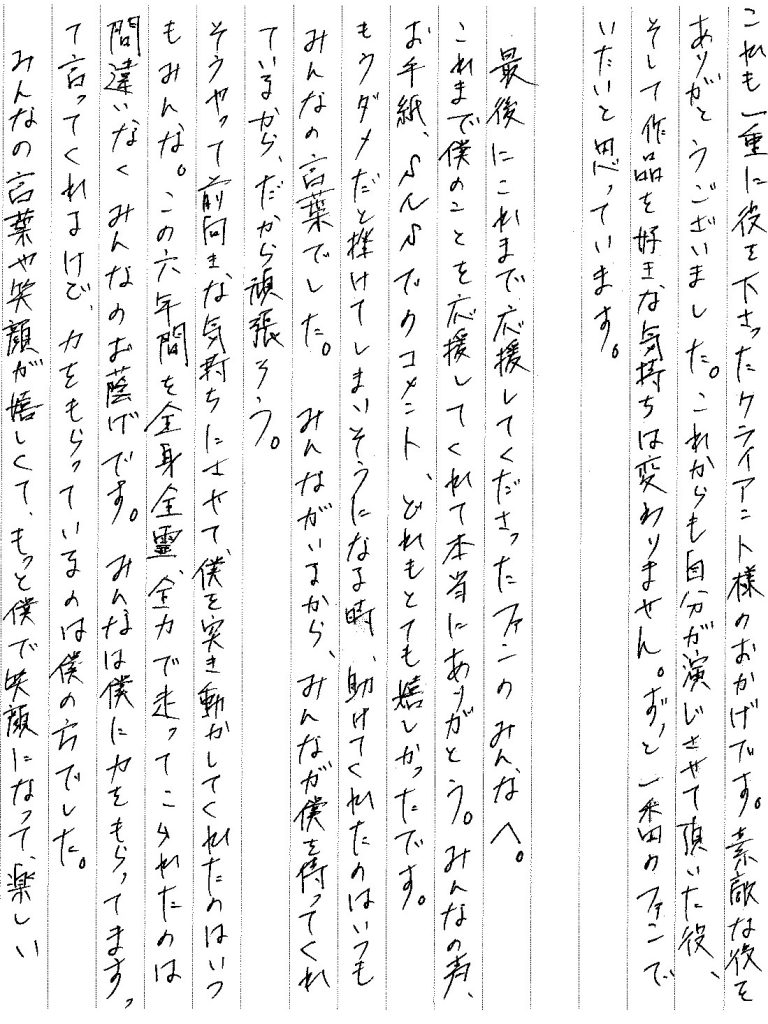 これも一重に役を下さったクライアント様のおかげです。素敵な役を
ありがとうございました。これからも自分が演じさせて頂いた役、
そして作品を好きな気持ちは変わりません。ずっと一番のファンで
いたいと思っています。
最後にこれまで応援してくださったファンのみんなへ。
これまで僕のことを応援してくれて本当にありがとう。みんなの声、
お手紙、SNSでのコメント、どれもとても嬉しかったです。
もうダメだと挫けてしまいそうになる時、助けてくれたのはいつも
みんなの言葉でした。 みんながいるから、みんなが僕を待ってくれ
ているから、だから頑張ろう。
そうやって前向きな気持ちにさせて、僕を突き動かしてくれたのはいつ
もみんな。この六年間を全身全霊、全力で走ってこられたのは
間違いなくみんなのお蔭げです。みんなは僕に力をもらってます、
て言ってくれるけど、力をもらっているのは僕の方でした。
みんなの言葉や笑顔が嬉しくて、もっと僕で笑顔になって、楽しい